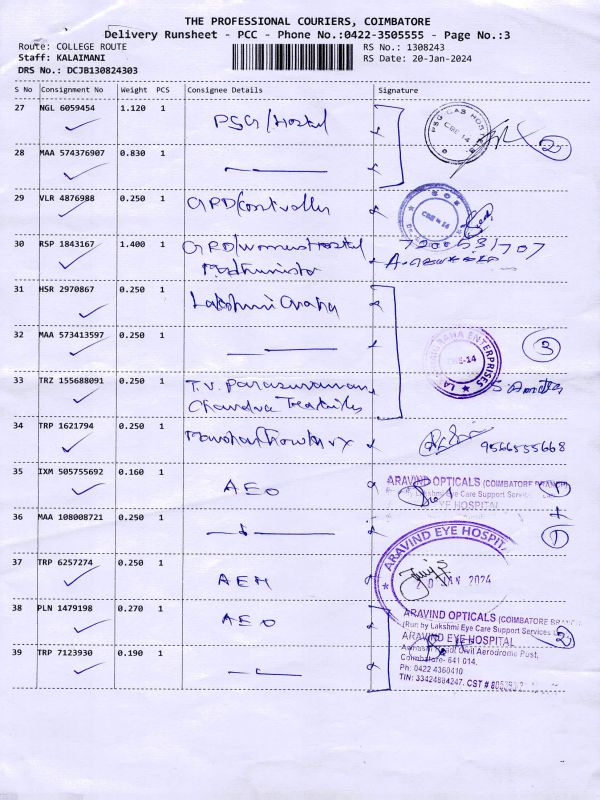 THE PROFESSIONAL COURIERS, COIMBATORE
Delivery Runsheet - PCC - Phone No.:0422-3505555 - Page No.:3
Route: COLLEGE ROUTE RS No.: 1308243
Staff: KALAIMANI RS Date: 20-Jan-2024
DRS No.: DCJB130824303
S No Consignment No Weight PCS Consignee Details Signature
27 NGL 6059454 1.120 1 PSG/Hostel
PSG CAS HOSTEL CBE 14
2
28 MAA 574376907 0.830 1
29 VLR 4876988 0.250 1 GPD/Controller
CBE 14
30 RSP 1843167 1.400 1 GPD/Womens Hostel
7200631707
31 HSR 2970867 0.250 1 Lakshmi
32 MAA 573413597 0.250 1
ENTERPRISES
3
33 TRZ 155688091 0.250 1 T.V. Parasuraman
Chandra Textiles
34 TRP 1621794 0.250 1
9566555668
35 IXM 505755692 0.160 1 AEO
ARAVIND OPTICALS (COIMBATORE BRANCH)
Lakshmi Eye Care Support Services
EYE HOSPITAL
1
+
36 MAA 108008721 0.250 1
1
ARAVIND EYE HOSPITAL
37 TRP 6257274 0.250 1 AEH
20 JAN 2024
38 PLN 1479198 0.270 1 AEO
ARAVIND OPTICALS (COIMBATORE BRANCH
(Run by Lakshmi Eye Care Support Services
2
ARAVIND EYE HOSPITAL
39 TRP 7123930 0.190 1
Civil Aerodrome Post,
Coimbatore- 641 014.
Ph: 0422 4360410
TIN: 33424884247. CST #